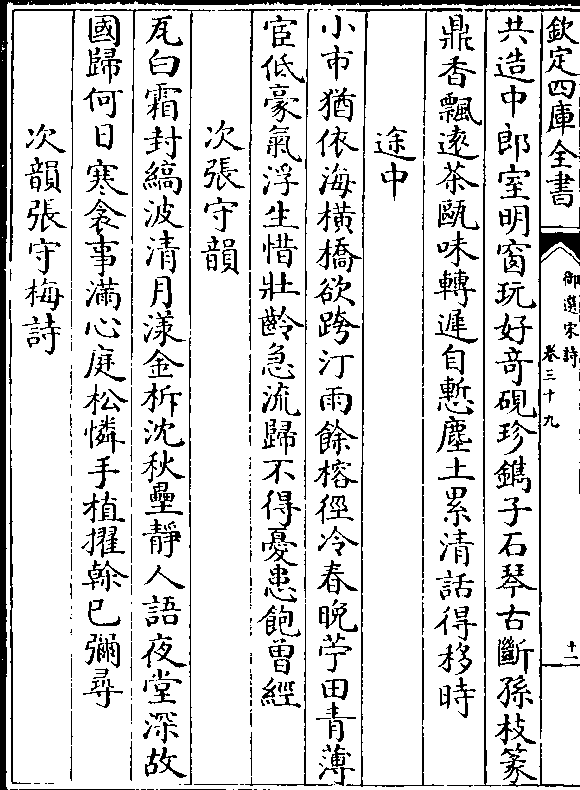 欽定四庫全書
御選宋詩
卷三十九
十二
共造中郎室明窗玩好竒硯珍鐫子石琴古斷孫枝篆
鼎香飄遠茶甌味轉遲自慙塵土累清話得移時
途中
小市猶依海橫橋欲跨汀雨餘榕徑冷春晚苧田青薄
宦低豪氣浮生惜壯齡急流歸不得憂患飽曾經
次張守韻
瓦白霜封縞波清月漾金柝沈秋壘靜人語夜堂深故
國歸何日寒衾事滿心庭松憐手植擢榦已彌尋
次韻張守梅詩